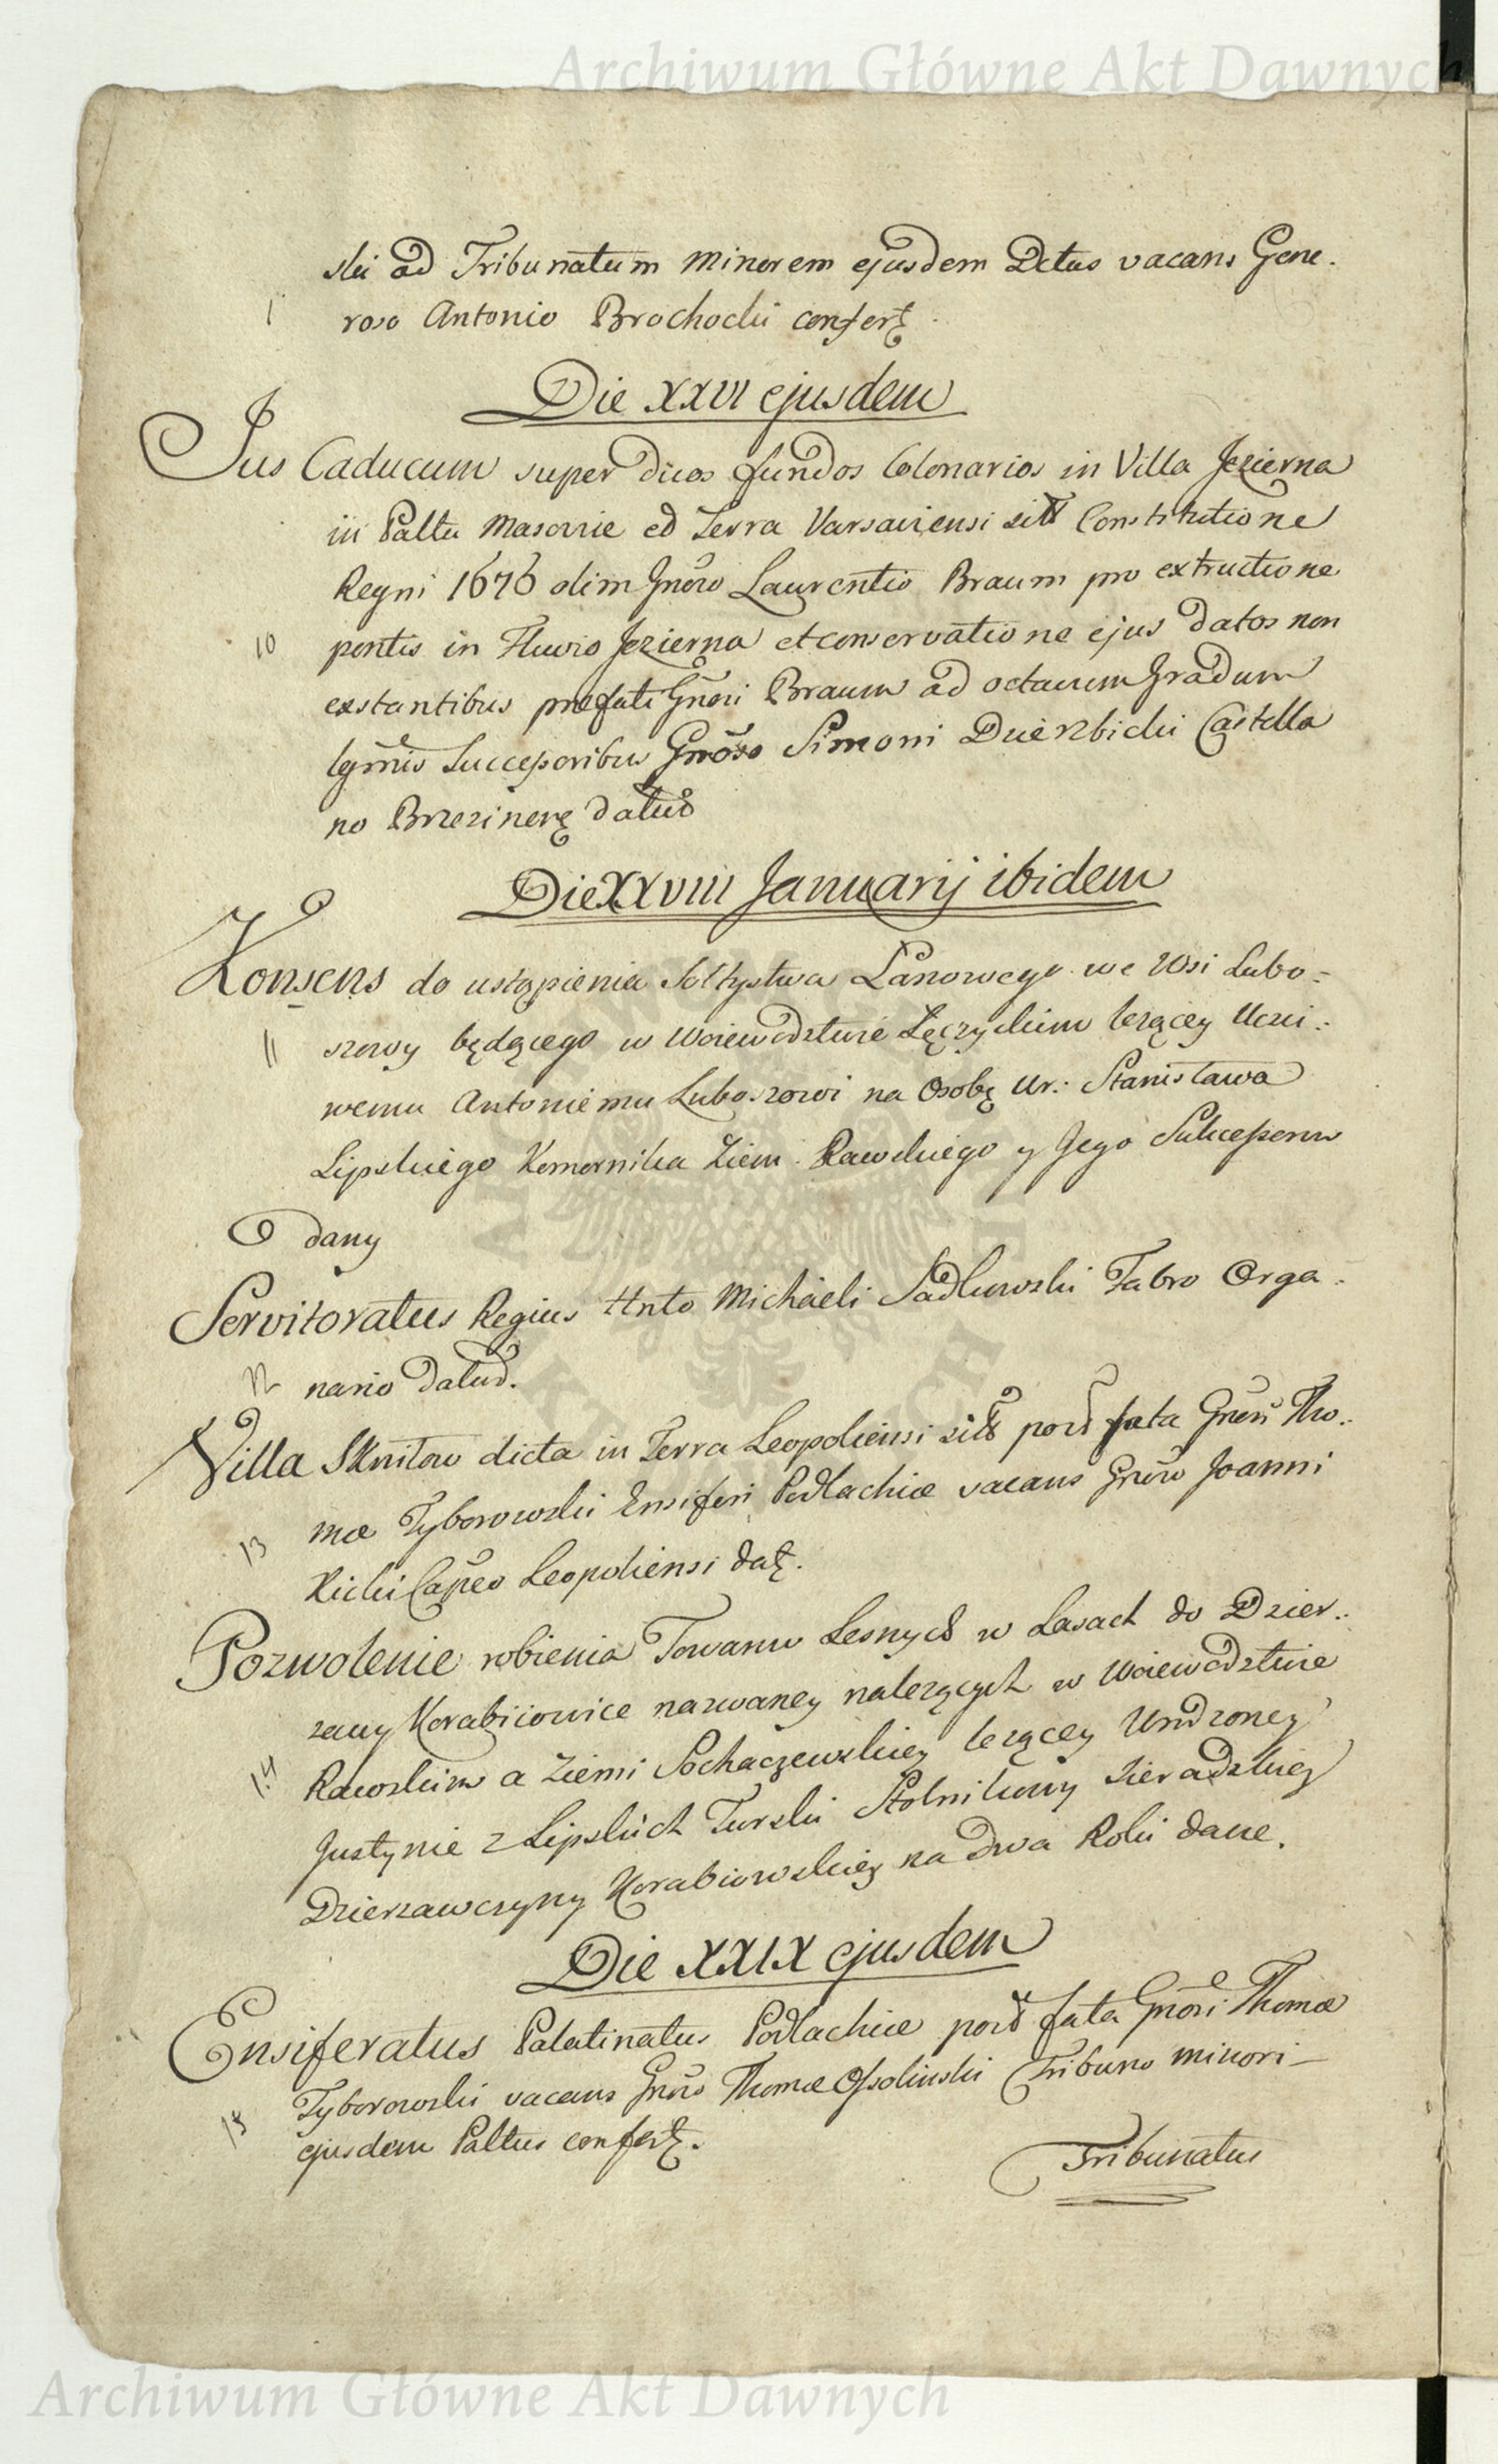 Archiwum Główne Akt Dawnych
ski ad Tribunatum Minorem ejusdem Dctus vacans Gene.
roso Antonio Brochocki confert.
Die XXVI ejusdem
Jus Caducum super duos fundos Colonarios in Villa Jezierna
in Palltu Masoviæ ed Terra Varsaviensi sitt Constitutione
Regni 1676 olim Gnöso Laurentio Braum pro extructione
10 pontis in Fluvio Jezierna et conservatione ejus datos non
exstantibus præfati Gnösi Braum ad octavum Gradum
lgmis Successoribus Gnöso Simoni Dzierzbicki Castella
no Brzezinen datus
Die XXVIII Januarij ibidem
Konsens do ustąpienia Sołtystwa Łanowego we Wsi Lubo=
11 szowy będącego w Woiewodztwie Łęczyckim leżącey Uczci:
wemu Antoniemu Luboszowi na Osobę Ur: Stanisława
Lipskiego Komornika Ziem: Rawskiego y Jego Sukcessorow
dany
Servitoratus Regius Hnto Michaeli Sadkowski Fabro Orga.
12 nario datus.
Villa Sknitow dicta in Terra Leopoliensi sits post fata Gnesi Tho.
13 mæ Tyborowski Ensiferi Podlachiæ vacans Gnöso Joanni
Kicki Capneo Leopoliensi dat.
Pozwolenie robienia Towarow Lesnych w Lasach do Dzier.
zawy Korabiiowice nazwaney nalezących w Woiewodztwie
14 Rawskim a Ziemi Sochaczewskiey lezącey Urodzoney
Justynie z Lipskich Turski Stolnikowy Sieradzkiey
Dzierzawczyny Korabiowskiey na dwa Roki dane.
Die XXIX ejusdem
Ensiferatus Palatinatus Podlachiæ post fata Gnösi Thomæ
15 Tyborowski vacans Gnöso Thomæ Ossolinski Tribuno minori
ejusdem Paltus confert.
Tribunatus
Archiwum Główne Akt Dawnych